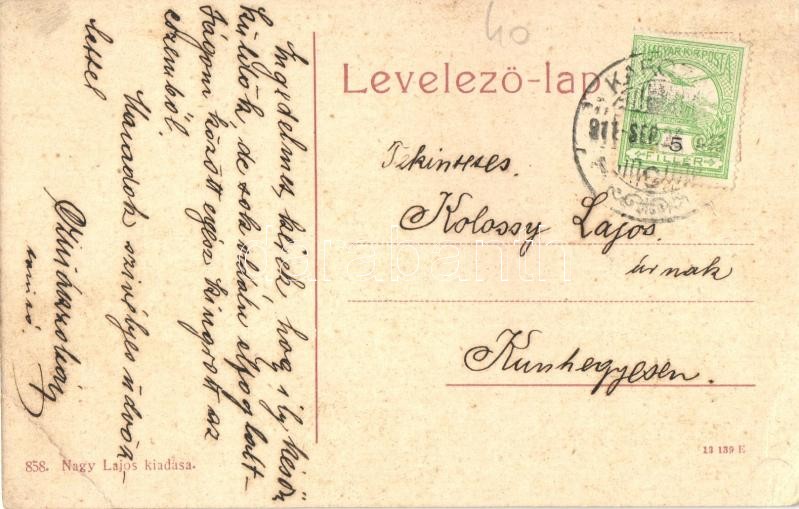 40
Levelező-lap
MAGYAR KIR. POSTA
5
FILLÉR
911 SEP
Tekintetes.
Kolossy Lajos.
úrnak
Kunhegyesen.
Engedelmet kérek, hogy ily késön
küldök de sok oldalu elfoglalt-
ságom között egész kingrott az
eszemből.
Maradok szivélyes üdvöz-
lettel
858. Nagy Lajos kiadása.
13 139 E
darabanth